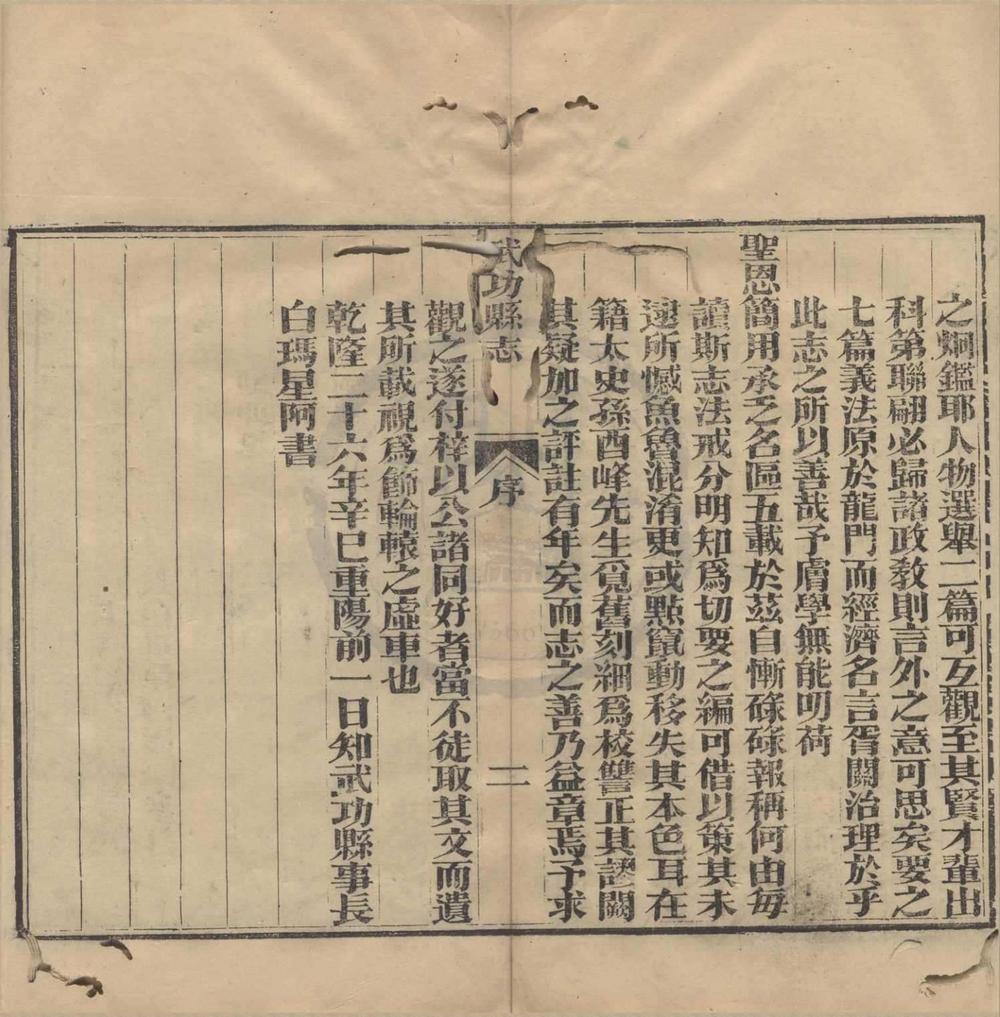 之炯鑑耶人物選舉二篇可互觀至其賢才輩出
科第聯翩必歸諸政教則言外之意可思矣要之
七篇義法原於龍門而經濟名言胥關治理於乎
此志之所以善哉予膚學無能叨荷
聖恩簡用承乏名區五載於茲自慚碌碌報稱何由每
謹斯志法戒分明知爲切要之編可借以策其未
逮所憾魚魯混淆更或點竄動移失其本色耳在
籍太史孫酉峰先生覓舊刻細爲校讐正其謬闕
其疑加之評註有年矣而志之善乃益章焉予求
武功縣志
序
二
觀之遂付梓以公諸同好者當不徒取其文而遺
其所載視爲飾輪轅之虛車也
乾隆二十六年辛巳重陽前一日知武功縣事長
白瑪星阿書